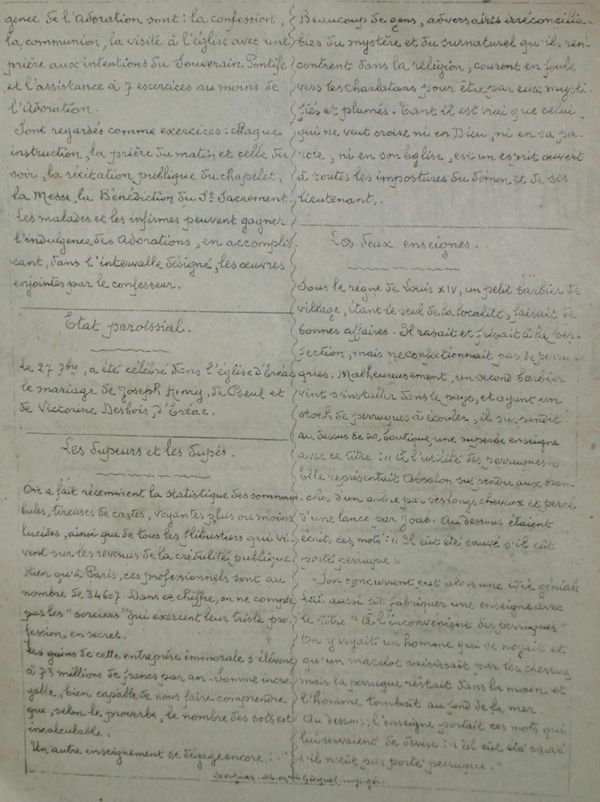 gence de l'Adoration sont : la confession,
la communion, la visite à l'église avec une
prière aux intentions du Souverain Pontife
et l'assistance à 7 exercices au moins de
l'Adoration.
Sont regardés comme exercices : chaque
instruction, la prière du matin et celle du
soir, la récitation publique du chapelet,
la Messe, la Bénédiction du St Sacrement.
Les malades et les infirmes peuvent gagner
l'indulgence des Adorations, en accomplis
sant, dans l'intervalle désigné, les œuvres
enjointes par le confesseur.
Etat paroissial.
Le 27 7bre, a été célébré dans l'église d'
le mariage de Joseph Henry, de et
de Victorine Desbois, d'
Les dupeurs et les dupés.
On a fait récemment la statistique des somnam
bules, tireuses de cartes, voyantes plus ou moins
lucides, ainsi que de tous les flibustiers qui vi
vent sur les revenus de la crédulité publique
Rien qu'à Paris, ces professionnels sont au
nombre de 34607. Dans ce chiffre, on ne compte
pas les "sorciers" qui exercent leur triste pro
fession en secret.
Les gains de cette entreprise immorale s'élèvent
à 73 millions de francs par an. Somme incro
yable, bien capable de nous faire comprendre
que, selon le proverbe, le nombre des sots est
incalculable.
Un autre enseignement se dégage encore :
Beaucoup de gens, adversaires irréconcilia-
bles du mystère et du surnaturel qu'ils ren
contrent dans la religion, courent en foule
vers les charlatans pour être par eux mysti
fiés et plumés. Tant il est vrai que celui
qui ne veut croire ni en Dieu, ni en sa pa
role, ni en son Eglise, est un esprit ouvert
à toutes les impostures du démon et de ses
lieutenants.
Les deux enseignes.
Sous le règne de Louis XIV, un petit barbier de
village, étant le seul de la localité, faisait de
bonnes affaires. Il rasait et frisait à la per-
fection, mais ne confectionnait pas de perru-
ques. Malheureusement, un second barbier
vint s'installer dans le pays, et ayant un
stock de perruques à écouler, il suspendit
au dessus de sa boutique une superbe enseigne
avec ce titre : « à l'utilité des perruques »
Elle représentait Absalon suspendu aux bran-
ches d'un arbre par ses longs cheveux et percé
d'une lance par Joab. Au dessous étaient
écrits ces mots : « Il eût été sauvé s'il eût
porté perruque »
Son concurrent eut alors une idée géniale
lui aussi fit fabriquer une enseigne avec
le titre "A l'inconvénient des perruques"
On y voyait un homme qui se noyait et
qu'un matelot saisissait par les cheveux
mais la perruque restait dans la main et
l'homme tombait au fond de la mer.
Au dessous, l'enseigne portait ces mots qui
lui servaient de devise : « il eût été sauvé
s'il n'eût pas porté perruque."